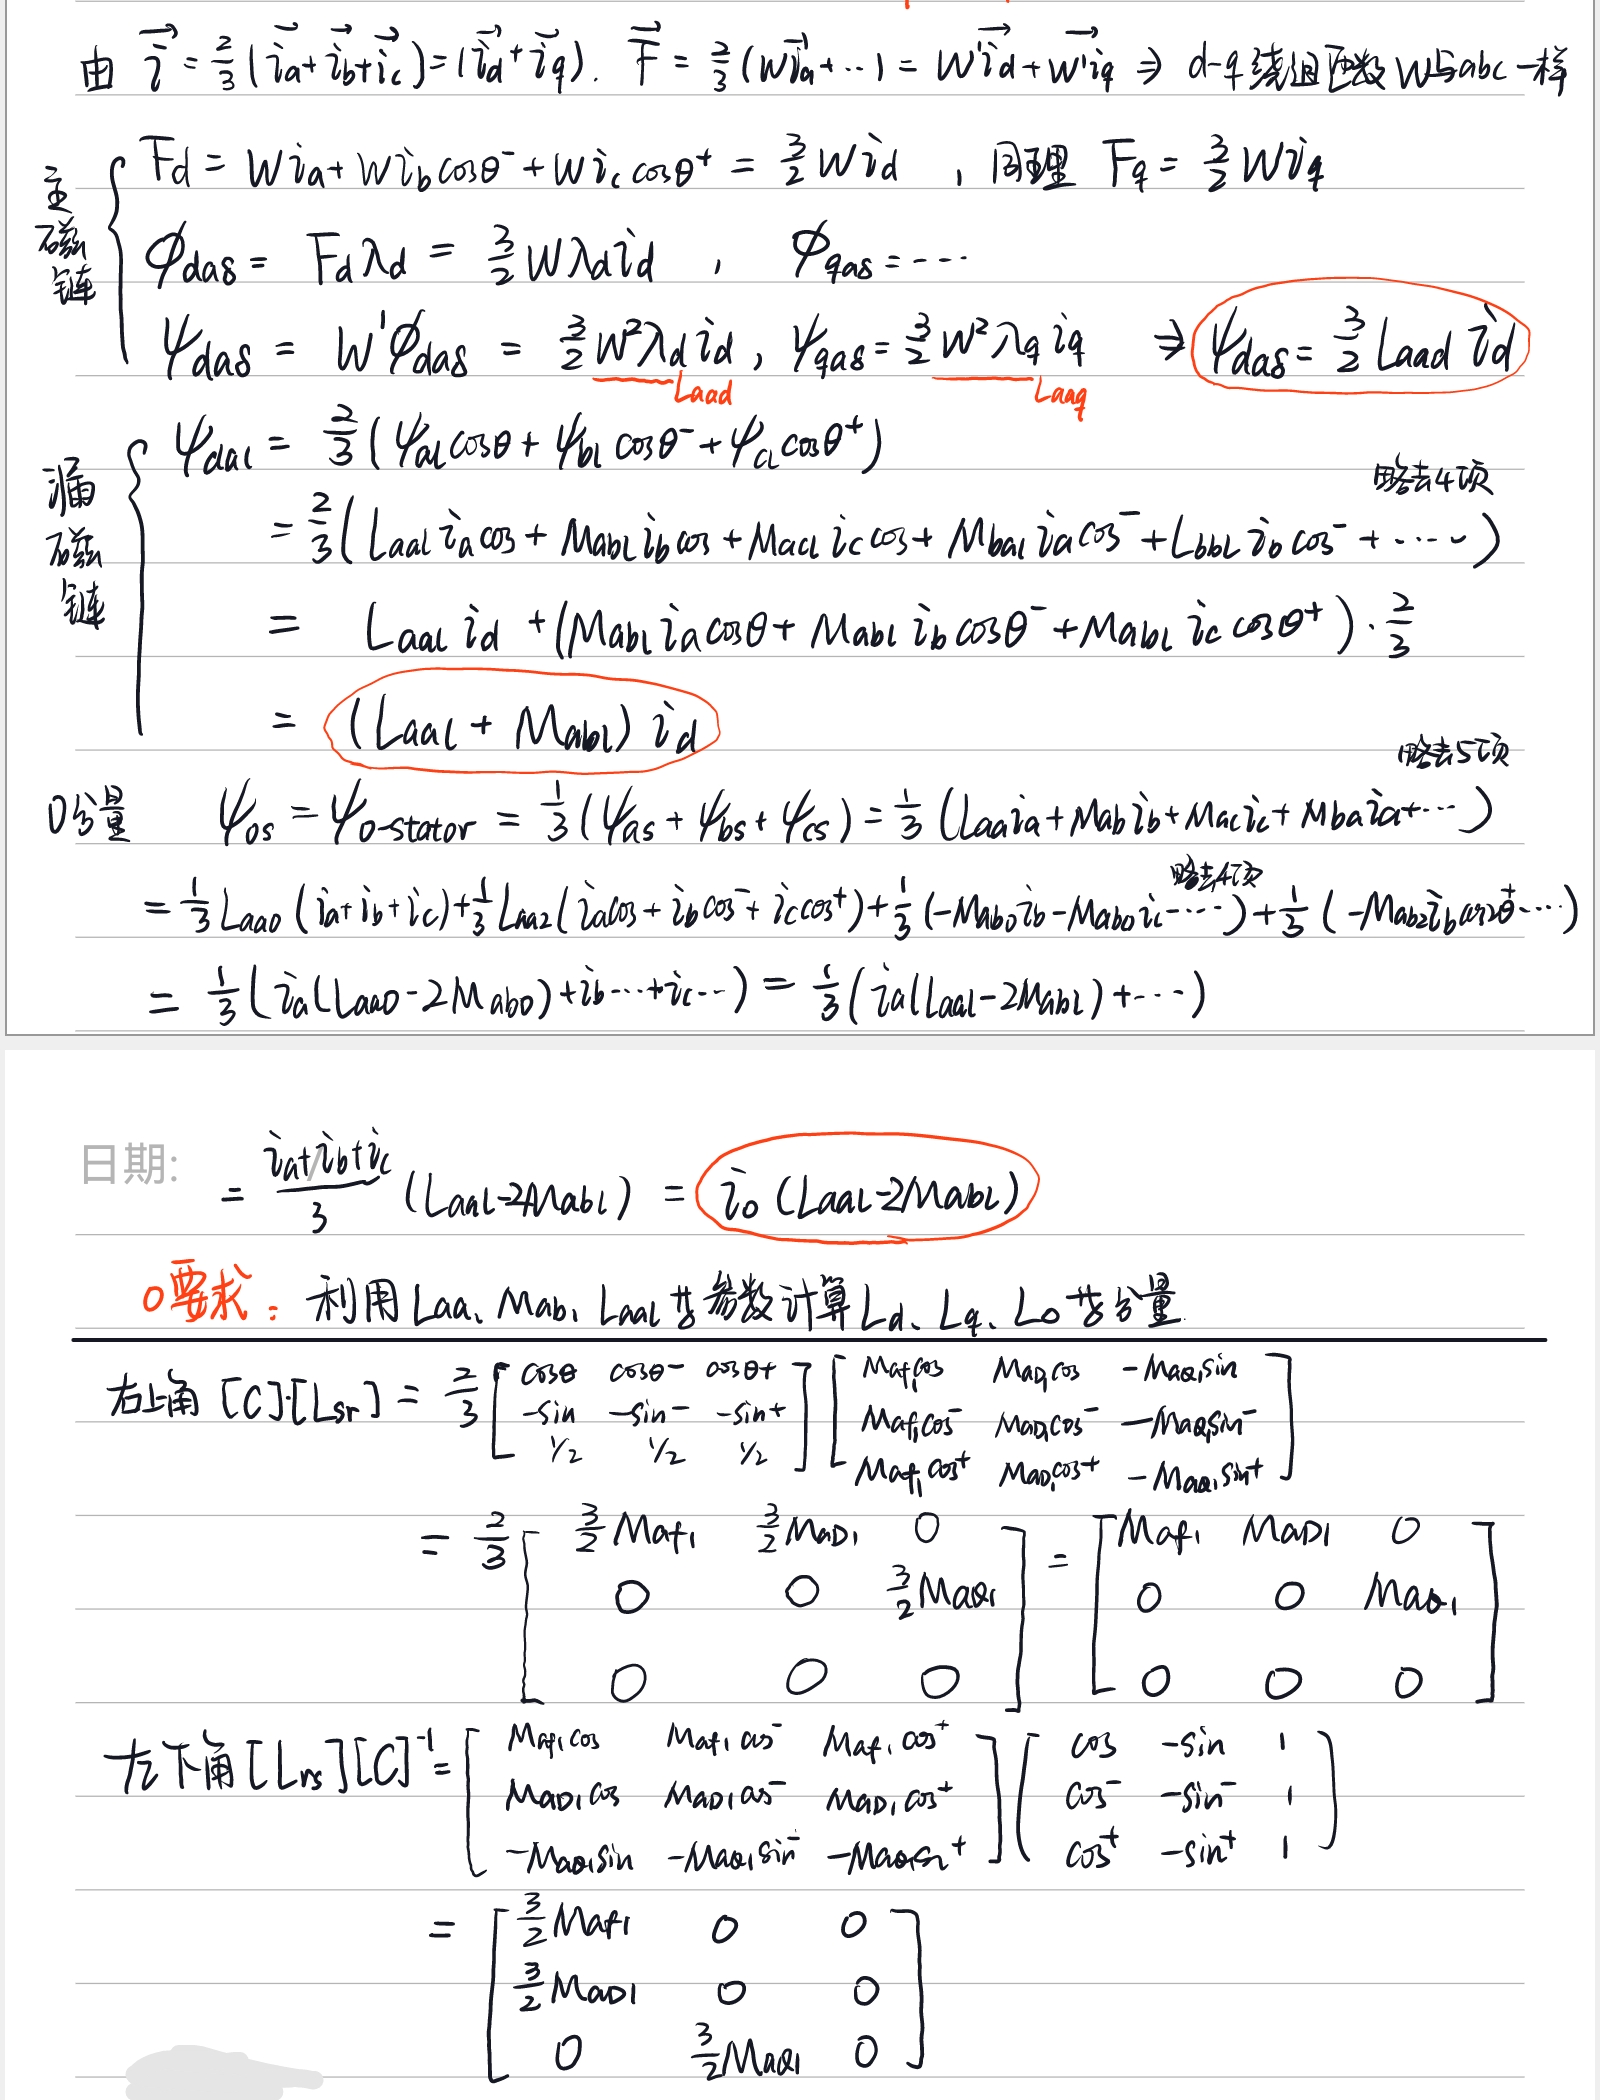 由 i = 2/3 (ia+ib+ic)=(id+iq). F = 2/3 (Wia+…) = W'id+W'iq ⇒ d-q绕组匝数W与abc一样
主磁链
Fd = Wia + Wib cosθ⁻ + Wic cosθ⁺ = 3/2 Wid , 同理 Fq = 3/2 Wiq
ϕdaδ = Fdλd = 3/2 Wλd id , ϕqaδ = …
ψdaδ = W'ϕdaδ = 3/2 W²λd id , ψqaδ = 3/2 W²λq iq ⇒ ψdaδ = 3/2 Laad id
Laad Laaq
漏磁链
ψdal = 2/3 (ψal cosθ + ψbl cosθ⁻ + ψcl cosθ⁺)
略去4项
= 2/3 (Laal ia cos + Mabl ib cos + Macl ic cos + Mbal ia cos⁻ + Lbbl ib cos⁻ + ……)
= Laal id + (Mabl ia cosθ + Mabl ib cosθ⁻ + Mabl ic cosθ⁺)·2/3
= (Laal + Mabl) id
略去5项
0分量 ψos = ψo-stator = 1/3 (ψas + ψbs + ψcs) = 1/3 (Laaia + Mabib + Macic + Mbaia+…)
略去4项
= 1/3 Laa0 (ia+ib+ic) + 1/3 Laa2 (iacos + ibcos⁻ + iccos⁺) + 1/3 (-Mab0ib - Mab0ic-…) + 1/3 (-Mab2ibcos2θ⁺…)
= 1/3 (ia(Laa0-2Mab0)+ib…+ic…) = 1/3 (ia(Laal-2Mabl)+…)
日期:
= (ia+ib+ic)/3 (Laal-2Mabl) = i0 (Laal-2Mabl)
○要求: 利用Laa、Mab、Laal等参数计算Ld、Lq、L0等分量
右上角 [C]·[Lsr] = 2/3 [cosθ cosθ⁻ cosθ⁺ [Maf1cos MaD1cos -MaQ1sin
-sin -sin⁻ -sin⁺ Maf1cos⁻ MaD1cos⁻ -MaQ1sin⁻
1/2 1/2 1/2] Maf1cos⁺ MaD1cos⁺ -MaQ1sin⁺]
= 2/3 [3/2 Maf1 3/2 MaD1 0 = [Maf1 MaD1 0
0 0 3/2 MaQ1 0 0 MaQ1
0 0 0] 0 0 0]
左下角 [Lrs][C]⁻¹ = [Maf1cos Maf1cos⁻ Maf1cos⁺ (cos -sin 1
MaD1cos MaD1cos⁻ MaD1cos⁺ cos⁻ -sin⁻ 1
-MaQ1sin -MaQ1sin⁻ -MaQ1sin⁺] cos⁺ -sin⁺ 1)
= [3/2 Maf1 0 0
3/2 MaD1 0 0
0 3/2 MaQ1 0]